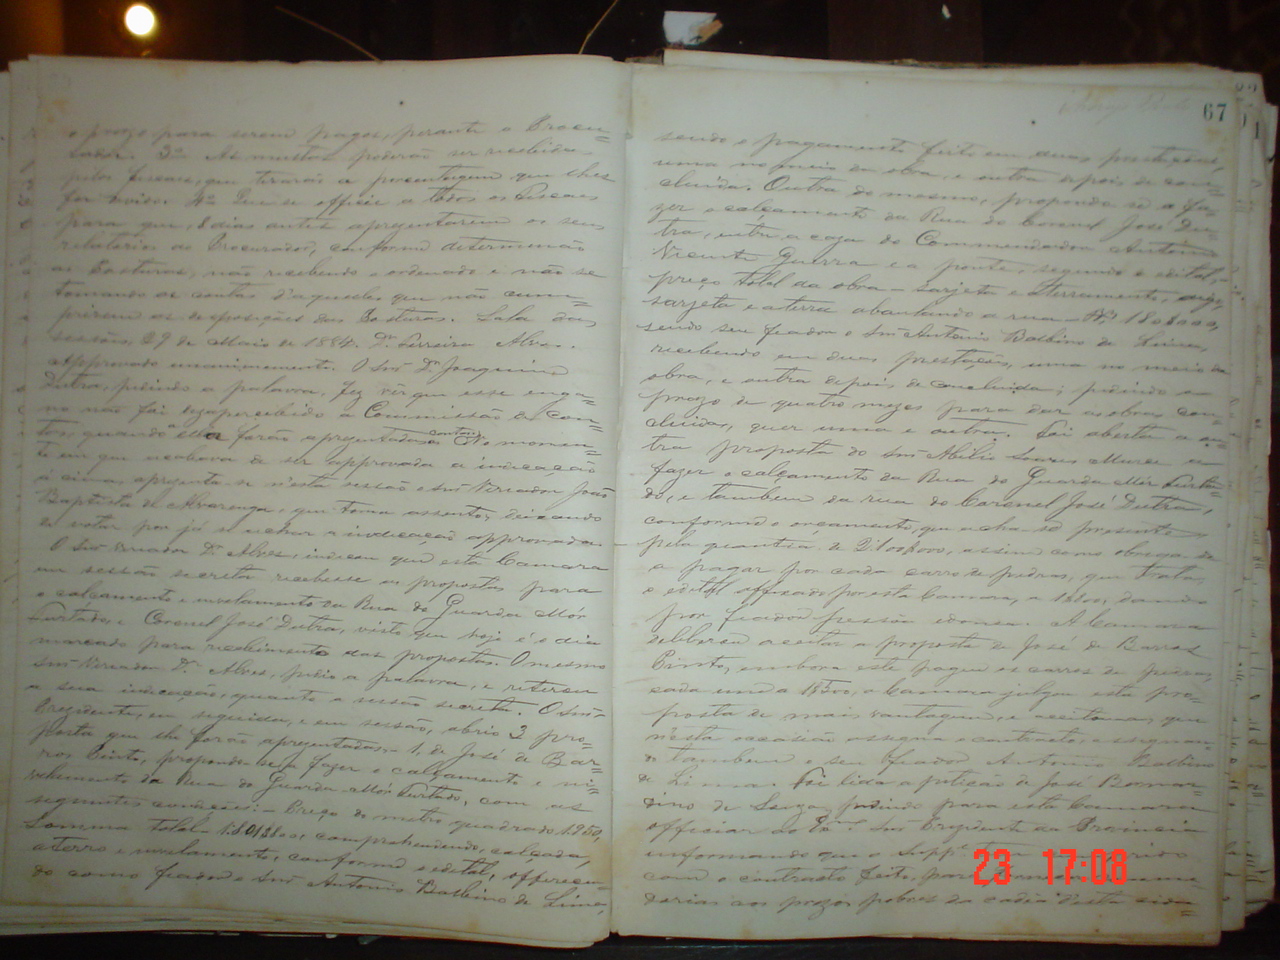 o prazo para serem pagos, perante o Procu=
rador. 3ª As multas poderão ser recebidas
pelos fiscaes, que tirarão a porcentagem que lhes
for devida. 4ª Que se officie a todos os fiscaes
para que, 8 dias antes apresentarem os seus
relatorios ao Procurador, conforme determinão
as Posturas, não recebendo o ordenado e não se
tomando as contas d'aquelles que não cum=
prirem as desposições das Posturas. Sala das
sessões, 29 de Maio de 1884. Dr. Ferreira Alves.
Approvado unanimemente. O Snr Dr. Joaquim
Dutra, pedindo a palavra, fez vêr que esse enga=
no não foi dezapercebido a Commissão de Con=
tas, quando a ella forão apresentadas as contas. No momen=
to em que acabava de ser approvada a indicação
á cima, apresenta-se n'esta sessão o snr Vereador João
Baptista de Alvarenga, que toma assento, deixando
de votar por já se achar a indicação approvada.
O Snr Vereador Dr. Alves, indicou que esta Camara
em sessão secreta recebesse as propostas para
o calçamento e nivelamento da Rua do Guarda Mór
Furtado, e Coronel José Dutra, visto que hoje é o dia
marcado para recebimento das propostas. O mesmo
snr Vereador Dr. Alves, pedio a palavra, e reterou
a sua indicação, quanto a sessão secreta. O Snr
Prezidente, em seguida, e em sessão, abrio 3 pro=
posta que lhe forão apresentadas, - 1, de José de Bar=
ros Pinto, propondo-se a fazer o calçamento e ni=
velamento da Rua do Guarda Mór Furtado, com as
seguintes condições: - Preço do metro quadrado 1250,
Somma total - comprehendendo, calçada,
aterro e nivelamento, conforme o edital, offerecen=
do como fiador o Snr Antonio Balbino de Lima,
67
sendo o pagamento feito em duas prestações,
uma no meio da obra, e outra depois de con=
cluida. Outra do mesmo, propondo-se a fa=
zer o calçamento da Rua do Coronel José Du=
tra, entre a caza do Commendador Antonio
Vicente Guerra e a ponte, segundo o edital,
preço total da obra - sarjeta e aterramento,
sarjeta e aterra abaulando a rua -
sendo seu fiador o Snr Antonio Balbino de Lima,
recebendo em duas prestações, uma no meio da
obra, e outra depois de concluida; pedindo o
prazo de quatro mezes para dar as obras con=
cluidas, quer uma e outra. Foi aberta a ou=
tra proposta do Snr Abilio Soares em
fazer o calçamento da Rua do Guarda Mór Furta=
do, e tambem da rua do Coronel José Dutra,
conforme o orçamento, que acha-se presente,
pela quantia de 2:100$000, assim como obriga-se
a pagar por cada carro de pedras, que trata
o edital affixado por esta Camara, a 1$200, dando
por fiador pessoa idonea. A Camara
deliberou aceitar a proposta de José de Barros
Pinto, embora este pague os carros de pedra,
cada um a 1$500, a Camara julgou esta pro=
posta de mais vantagem, e aceitou-a, que
n'esta occasião assigna o contracto, e assignan=
do tambem o seu fiador Antonio Balbino
de Lima. Foi lida a petição de José Bernar=
dino de Souza, pedindo para esta Camara
officiar ao Exmo. Snr Prezidente da Provincia
informando que o Suppe tem cumprido
com o contracto feito, para
darias aos prezos pobres da cadêa desta cida=
23 17:08